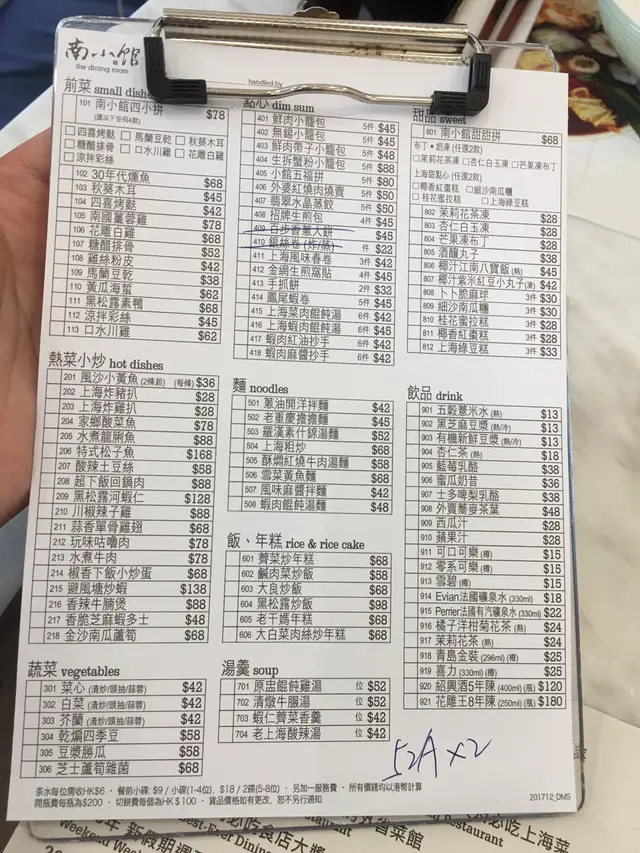 南小館
the dining room
handled by
前菜 small dishes
101 南小館四小拼 $78
(選以下任何4款)
四喜烤麩 馬蘭豆乾 秋葵木耳
糖醋排骨 口水川雞 花雕白雞
涼拌彩絲
102 30年代燻魚 $68
103 秋葵木耳 $45
104 四喜烤麩 $42
105 南國薑蓉雞 $78
106 花雕白雞 $68
107 糖醋排骨 $52
108 雞絲粉皮 $42
109 馬蘭豆乾 $38
110 黃瓜海蜇 $62
111 黑松露素鴨 $68
112 涼拌彩絲 $45
113 口水川雞 $62
點心 dim sum
401 鮮肉小籠包 5件 $45
402 無錫小籠包 5件 $45
403 鮮肉帶子小籠包 5件 $48
404 生拆蟹粉小籠包 5件 $88
405 小館五福拼 $80
406 外婆紅燒肉燒賣 5件 $50
407 翡翠水晶蒸餃 5件 $50
408 招牌生煎包 4件 $45
409 百步香蔥大餅 $45
410 銀絲卷 (炸/蒸) 件 $22
411 上海風味春卷 3件 $42
412 金網生煎窩貼 4件 $45
413 手抓餅 2件 $32
414 鳳尾蝦卷 5件 $45
415 上海菜肉餛飩湯 6件 $42
416 上海蝦肉餛飩湯 6件 $45
417 蝦肉紅油抄手 6件 $42
418 蝦肉麻醬抄手 6件 $42
甜品 sweet
801 南小館甜甜拼 $68
布丁•奶凍 (任選2款)
茉莉花茶凍 杏仁白玉凍 芒果凍布丁
上海甜點心 (任選2款)
椰香紅棗糕 細沙南瓜糰
桂花蜜拉糕 上海綠豆糕
802 茉莉花茶凍 $28
803 杏仁白玉凍 $28
804 芒果凍布丁 $28
805 酒釀丸子 $38
806 椰汁江南八寶飯 (熱) $45
807 椰汁紫米紅豆小丸子 (凍) $42
808 卜卜脆麻球 3件 $30
809 細沙南瓜糰 3件 $30
810 桂花蜜拉糕 3件 $28
811 椰香紅棗糕 3件 $28
812 上海綠豆糕 3件 $33
熱菜小炒 hot dishes
201 風沙小黃魚 (2條起) (每條) $36
202 上海炸豬扒 $28
203 上海炸雞扒 $28
204 家鄉酸菜魚 $78
205 水煮龍脷魚 $88
206 特式松子魚 $168
207 酸辣土豆絲 $58
208 超下飯回鍋肉 $88
209 黑松露河蝦仁 $128
210 川椒辣子雞 $88
211 蒜香單骨雞翅 $68
212 玩味咕嚕肉 $78
213 水煮牛肉 $78
214 椒香下飯小炒蛋 $68
215 避風塘炒蝦 $138
216 香辣牛腩煲 $88
217 香脆芝麻蝦多士 $48
218 金沙南瓜蘆筍 $68
麵 noodles
501 蔥油開洋拌麵 $42
502 老重慶擔擔麵 $45
503 羅漢素什錦湯麵 $52
504 上海粗炒 $68
505 酥燜紅燒牛肉湯麵 $58
506 雪菜黃魚麵 $68
507 風味麻醬拌麵 $42
508 蝦肉餛飩湯麵 $48
飯、年糕 rice & rice cake
601 薺菜炒年糕 $68
602 鹹肉菜炒飯 $58
603 大良炒飯 $68
604 黑松露炒飯 $98
605 老干媽年糕 $68
606 大白菜肉絲炒年糕 $68
飲品 drink
901 五穀薏米水 (熱) $13
902 黑芝麻豆漿 (熱/冷) $13
903 有機新鮮豆漿 (熱/冷) $13
904 杏仁茶 (熱) $18
905 藍莓乳酪 $38
906 蜜瓜奶昔 $36
907 士多啤梨乳酪 $38
908 外賣蕎麥茶葉 $48
909 西瓜汁 $28
910 蘋果汁 $28
911 可口可樂 (樽) $15
912 零系可樂 (樽) $15
913 雪碧 (樽) $15
914 Evian法國礦泉水 (330ml) $18
915 Perrier法國有汽礦泉水 (330ml) $22
916 橘子洋柑菊花茶 (熱) $24
917 茉莉花茶 (熱) $24
918 青島金裝 (296ml) (樽) $25
919 喜力 (330ml) (樽) $25
920 紹興酒5年陳 (400ml) (瓶) $120
921 花雕王8年陳 (250ml) (瓶) $180
蔬菜 vegetables
301 菜心 (清炒/頭抽/蒜蓉) $42
302 白菜 (清炒/頭抽/蒜蓉) $42
303 芥蘭 (清炒/頭抽/蒜蓉) $42
304 乾煸四季豆 $58
305 豆漿勝瓜 $58
306 芝士蘆筍雜菌 $68
湯羹 soup
701 原盅餛飩雞湯 位 $52
702 清燉牛腸湯 位 $52
703 蝦仁薺菜香羹 位 $42
704 老上海酸辣湯 位 $42
52A x2
茶水每位需收HK$6 · 餐前小碟: $9 / 小碟(1-4位), $18 / 2碟(5-8位) · 另加一服務費 · 所有價錢均以港幣計算
開瓶費每瓶為$200 · 切餅費每個為HK$100 · 貨品價格如有更改, 恕不另行通知
201712_DMS